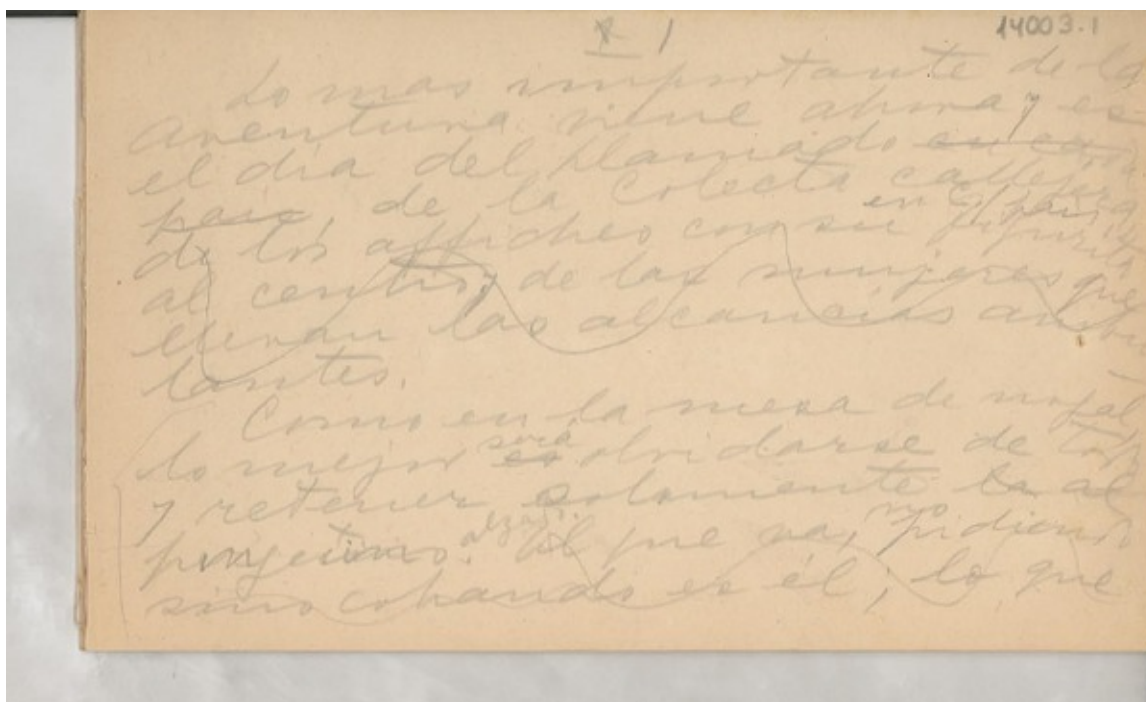 1 14003.1
Lo mas importante de la
aventura viene ahora y es
el día del llamado en casa
pase, de la Colecta callejera
en el país,
de los affiches con su figurita
al centro, de las mujeres que
llevan las alcancías ambu
lantes.
Como en la mesa de
será
lo mejor es olvidarse de todo
y retener solamente al
no
que va, pidiendo
sino cobrando es él; lo que